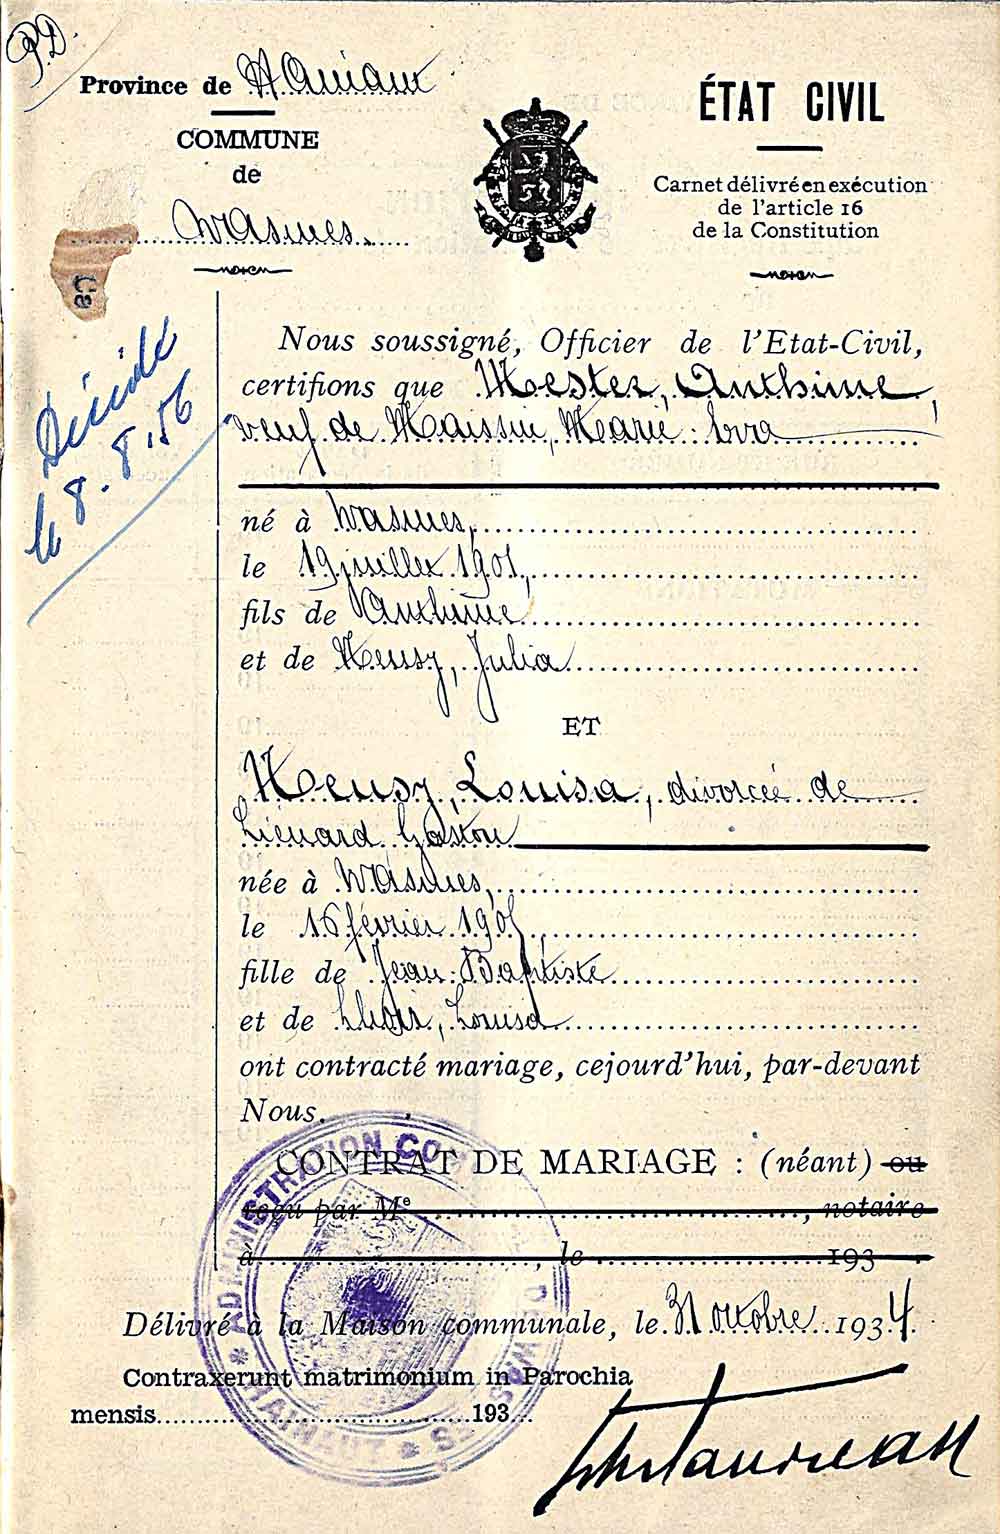 P.D.
Province de Hainaut
COMMUNE
de
Wasmes.
ÉTAT CIVIL
Carnet délivré en exécution
de l'article 16
de la Constitution
Décédé
le 8.8.56
Nous soussigné, Officier de l'Etat-Civil,
certifions que Mester, Anthime,
veuf de Maissin, Marie
né à Wasmes,
le 19 juillet 1901,
fils de Anthime
et de Heusy, Julia
ET
Heusy, Louisa, divorcée de
Liénard Gaston
née à Wasmes,
le 16 février 1905,
fille de Jean-Baptiste
et de Louisa
ont contracté mariage, cejourd'hui, par-devant
Nous.
CONTRAT DE MARIAGE : (néant) ou
reçu par Me, notaire
à, le 193
Délivré à la Maison communale, le 31 octobre 1934.
Contraxerunt matrimonium in Parochia
mensis 193
ADMINISTRATION CO DE WASMES * HAINAUT *